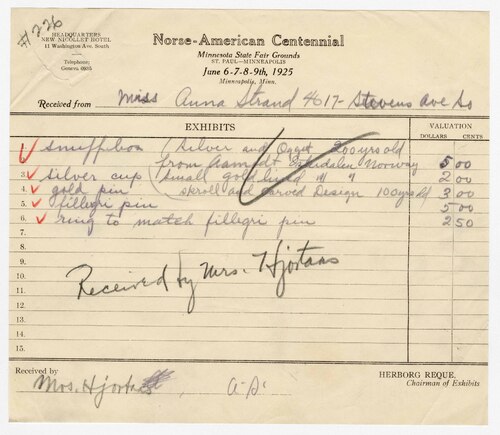 #226
HEADQUARTERS
NEW NICOLLET HOTEL
41 Washington Ave. South
Telephone:
Geneva 6935
Norse-American Centennial
Minnesota State Fair Grounds
ST. PAUL—MINNEAPOLIS
June 6-7-8-9th, 1925
Minneapolis, Minn.
Received from Miss Anna Strand 4617- Stevens Ave So
EXHIBITS
VALUATION
DOLLARS CENTS
✓ snuffbox (Silver and 200 yrs old
from Norway 5 00
✓ 3. silver cup (small gold lined " " 2 00
✓ 4. gold pin skroll and carved Design 100 yrs old 3 00
✓ 5. fillegri pin 5 00
✓ 6. ring to match fillegri pin 2 50
7.
8.
9.
10.
Received by Mrs. Hjortaas
11.
12.
13.
14.
15.
Received by
Mrs. Hjortaas, a-s.
HERBORG REQUE.
Chairman of Exhibits